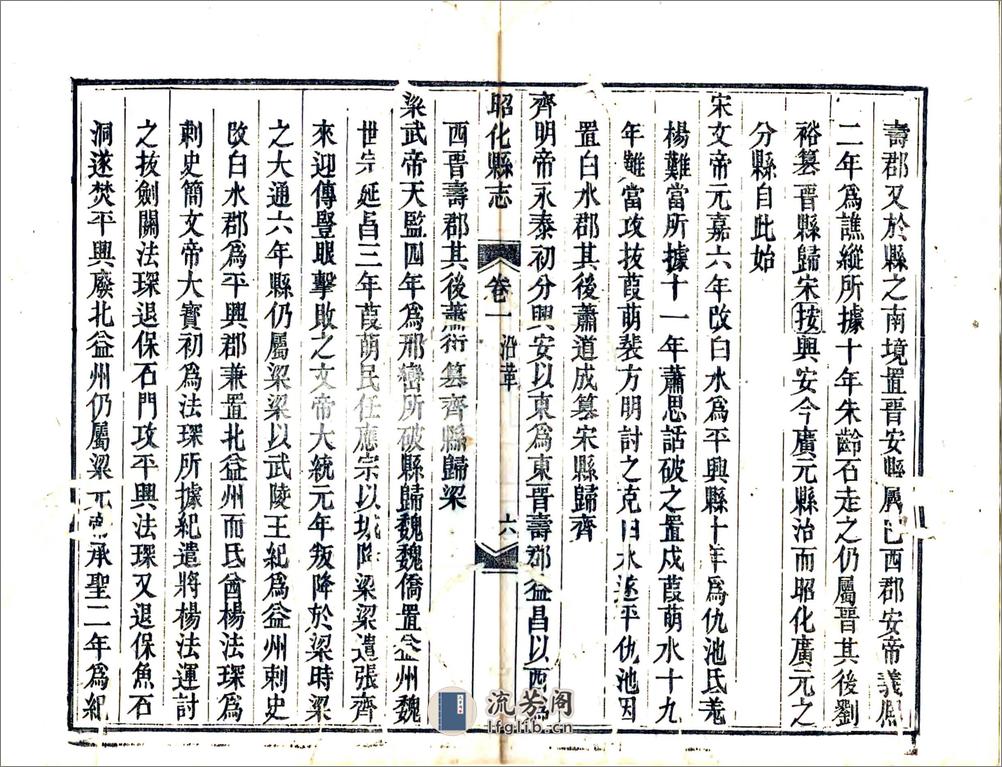 壽郡又於縣之南境置晉安縣屬巴西郡安帝義熙
二年爲譙縱所據十年朱齡石走之仍屬晉其後劉
裕篡晉縣歸宋按興安今廣元縣治而昭化廣元之
分縣自此始
宋文帝元嘉六年改白水爲平興縣十年爲仇池氐羌
楊難當所據十一年蕭思話破之置戍葭萌水十九
年難當攻拔葭萌裴方明討之克白水遂平仇池因
置白水郡其後蕭道成篡宋縣歸齊
齊明帝永泰初分興安以東爲東晉壽郡益昌以西爲
昭化縣志 卷一 沿革 六
西晉壽郡其後蕭衍篡齊縣歸梁
梁武帝天監四年爲邢巒所破縣歸魏魏僑置益州魏
世宗延昌三年葭萌民任應宗以城降梁梁遣張齊
來迎傅豎眼擊敗之文帝大統元年叛降於梁時梁
之大通六年縣仍屬梁梁以武陵王紀爲益州刺史
改白水郡爲平興郡兼置北益州而氐酋楊法琛爲
刺史簡文帝大寶初爲法琛所據紀遣將楊法運討
之拔劍關法琛退保石門攻平興法琛又退保魚石
洞遂焚平興廢北益州仍屬梁元帝承聖二年爲紀
流芳阁
lfglib.cn